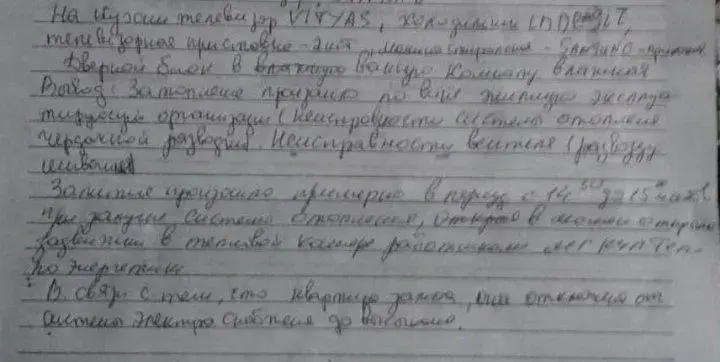 На кухни телевизор VITYAS, холодильник INDESIT,
телевизорная приставка - 2шт, машина стиральная - SAMSUNG -
Дверной блок в ванную комнату влажная
Вывод: Затопление произошло по вине жилищно эксплуа
тирующей организации (Неисправности системы отопления
чердачной разводки. Неисправность вентиля (
Залитие произошло примерно в период с 14 50 до 15
при запуске системы отопления, открыто в
задвижки в тепловой камере работниками
по энергетики
В связи с тем, что квартира залита, она отключена от
системы электро снабжения до